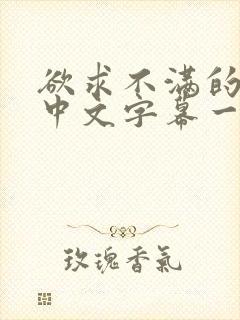 欲求不满的
中文字幕一
玫瑰香氣